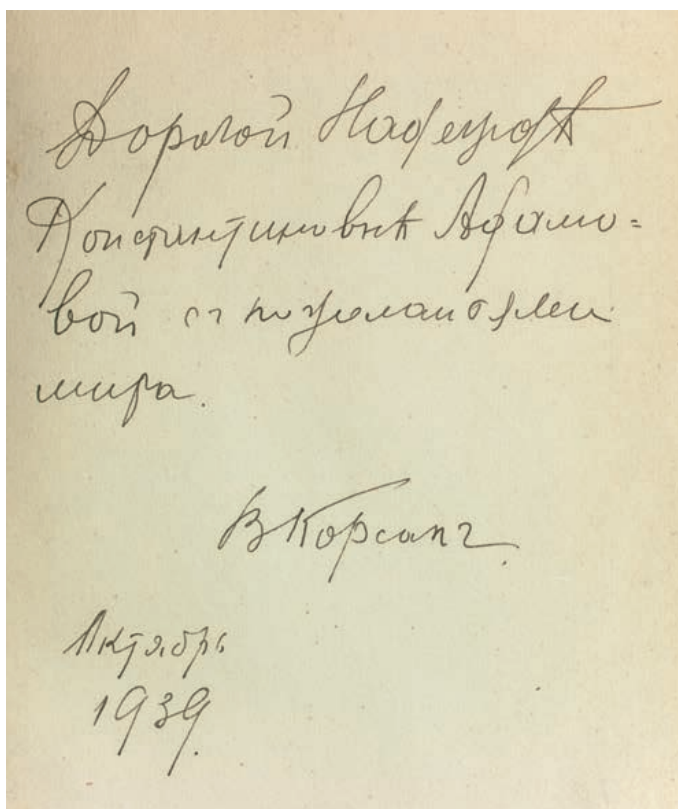 Дорогой Надеждѣ
Константиновнѣ Адамо=
вой съ пожеланіями
мира.
ВКорсакъ.
Октябрь
1939.